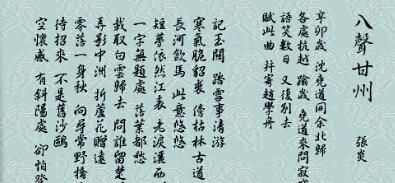 八聲甘州
張炎
辛卯歲 沈堯道同余北歸
各處杭越 踰歲 堯道來問寂
語笑數日 又復別去
賦此曲 并寄趙學舟
記玉關 踏雪事清游
寒氣脆貂裘 傍枯林古道
長河飲馬 此意悠悠
短夢依然江表 老淚灑西
一字無題處 落葉都愁
載取白雲歸去 問誰留楚
弄影中洲 折蘆花贈遠
零落一身秋 向尋常野橋
待招來 不是舊沙鷗
空懷感 有斜陽處 卻怕登